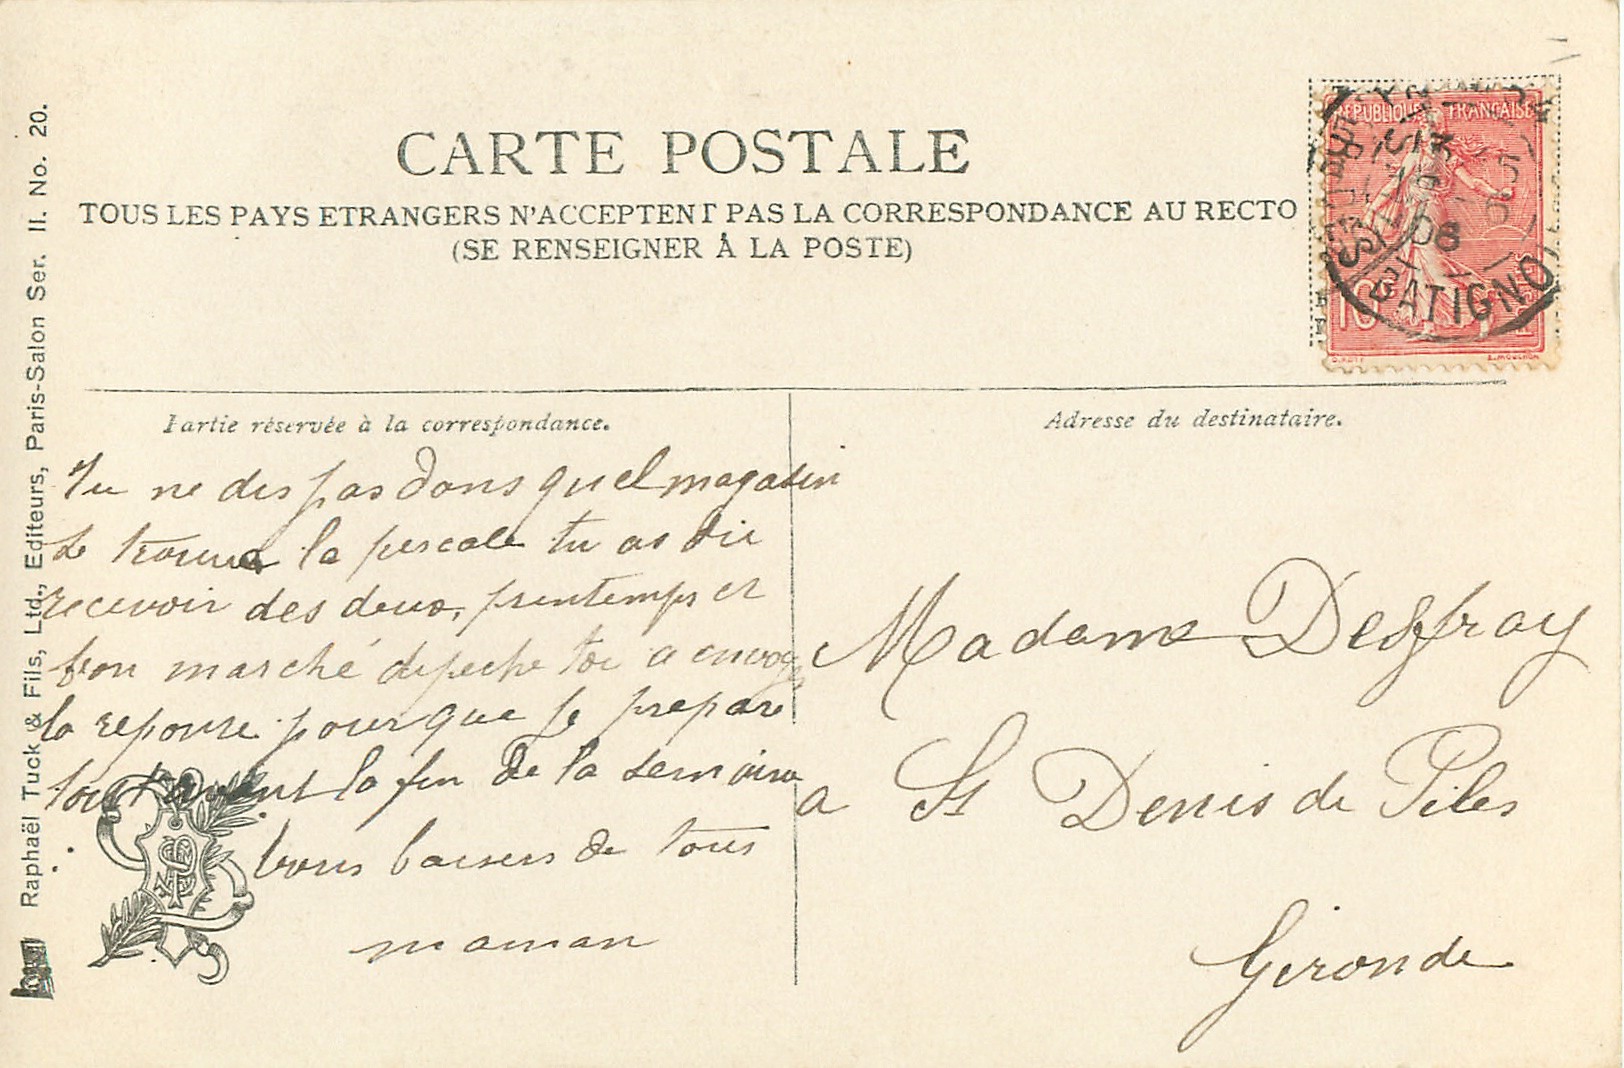 CARTE POSTALE
TOUS LES PAYS ETRANGERS N'ACCEPTENT PAS LA CORRESPONDANCE AU RECTO
(SE RENSEIGNER À LA POSTE)
REPUBLIQUE FRANCAISE
10
BATIGNO
08
O. ROTY
E. MOUCHON
Partie réservée à la correspondance.
Tu ne dis pas dans quel magasin
se trouve la percale tu as du
recevoir des deux, printemps et
bon marché depeche toi a envoyer
la reponse pour que je prepare
tout avant la fin de la semaine
bons baisers de tous
maman
Adresse du destinataire.
Madame Desfray
a St Denis de Piles
Gironde
Raphaël Tuck & Fils, Ltd., Editeurs, Paris-Salon Ser. II. No. 20.